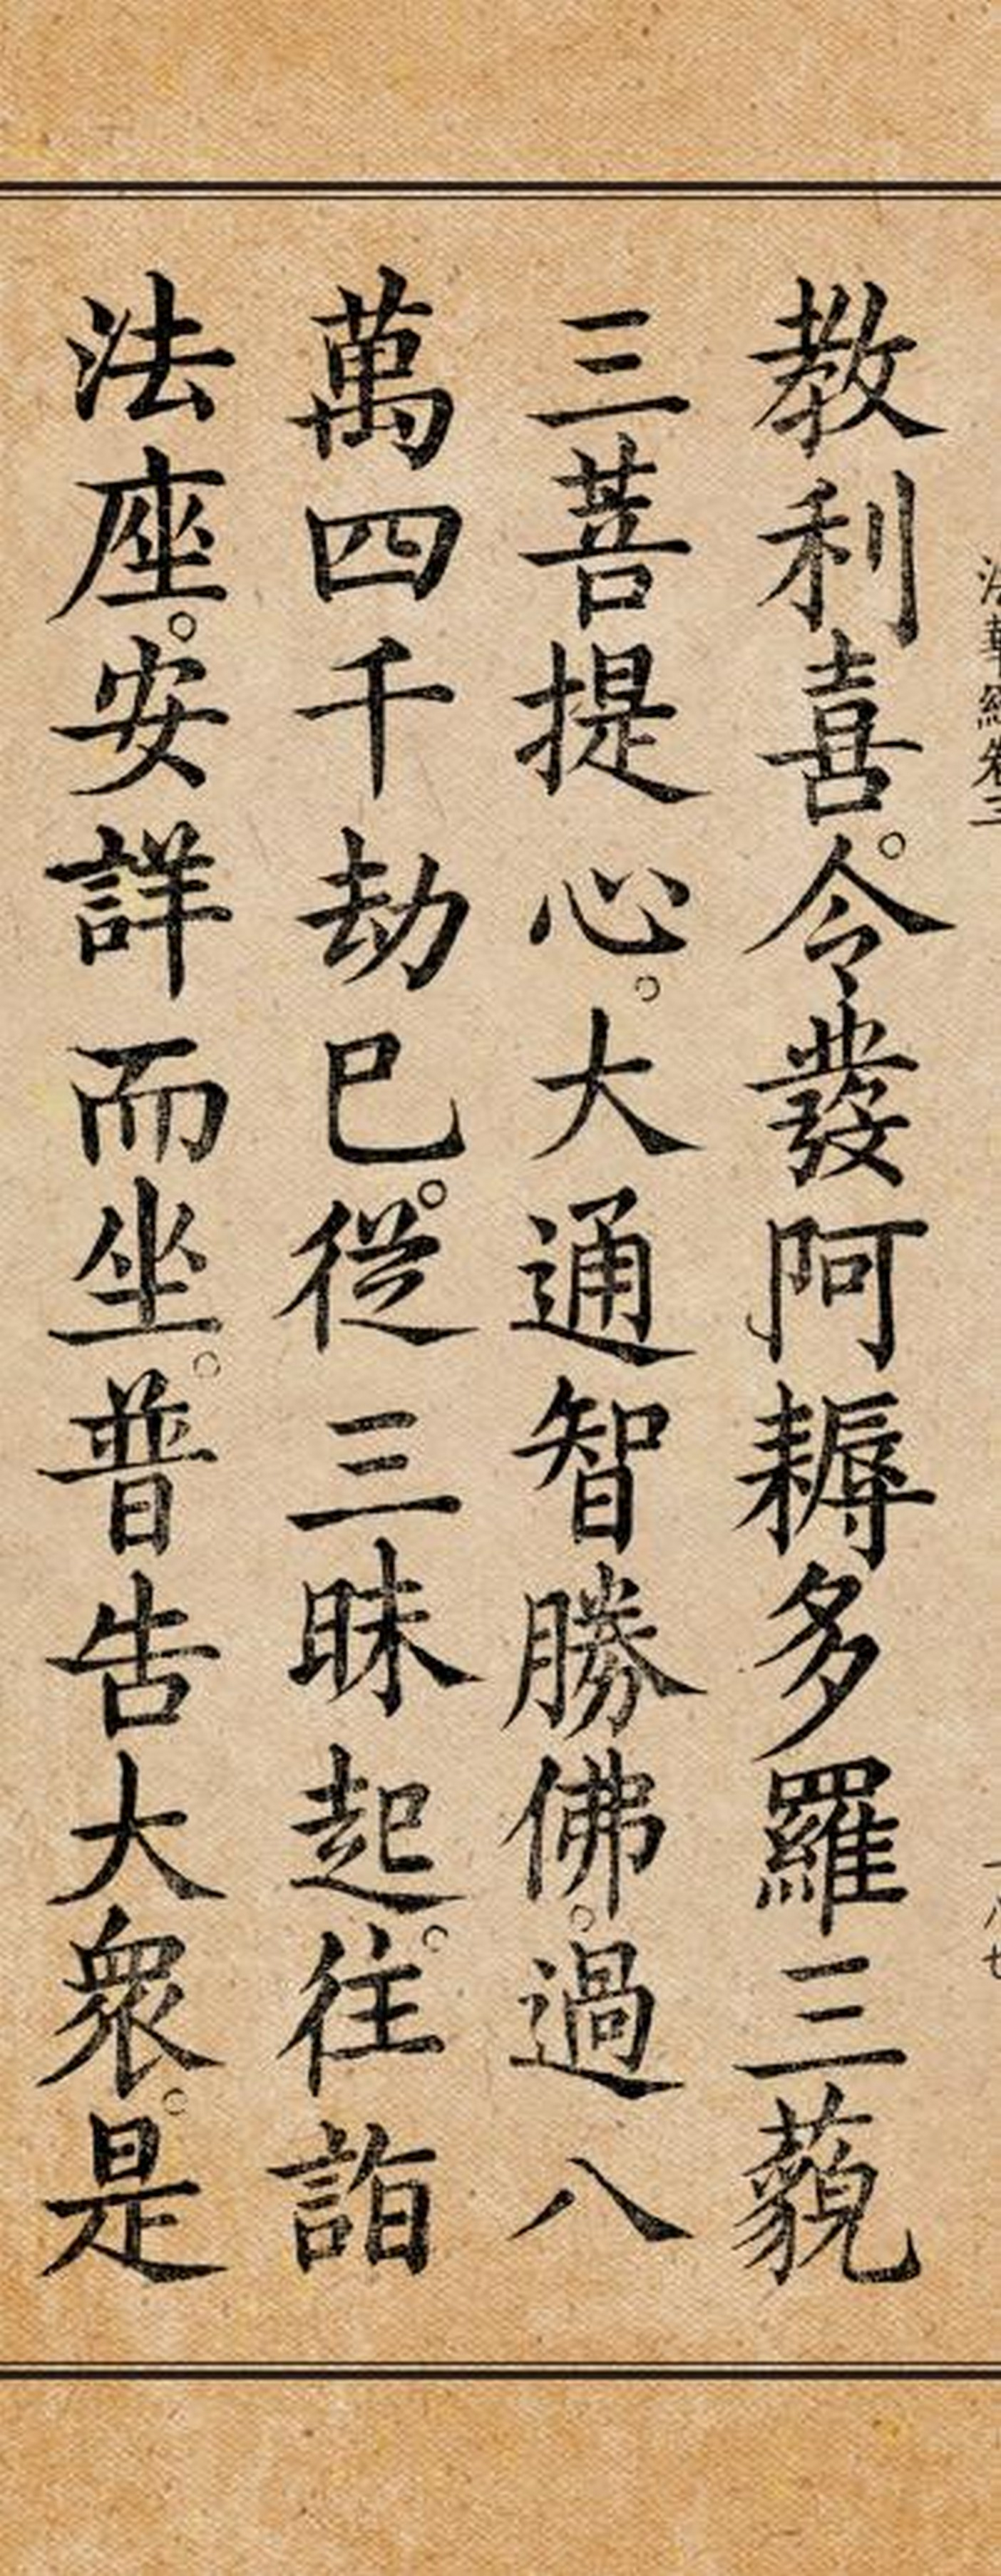 法華經卷三
教利喜。令發阿耨多羅三藐
三菩提心。大通智勝佛。過八
萬四千劫已。從三昧起。往詣
法座。安詳而坐。普告大衆。是